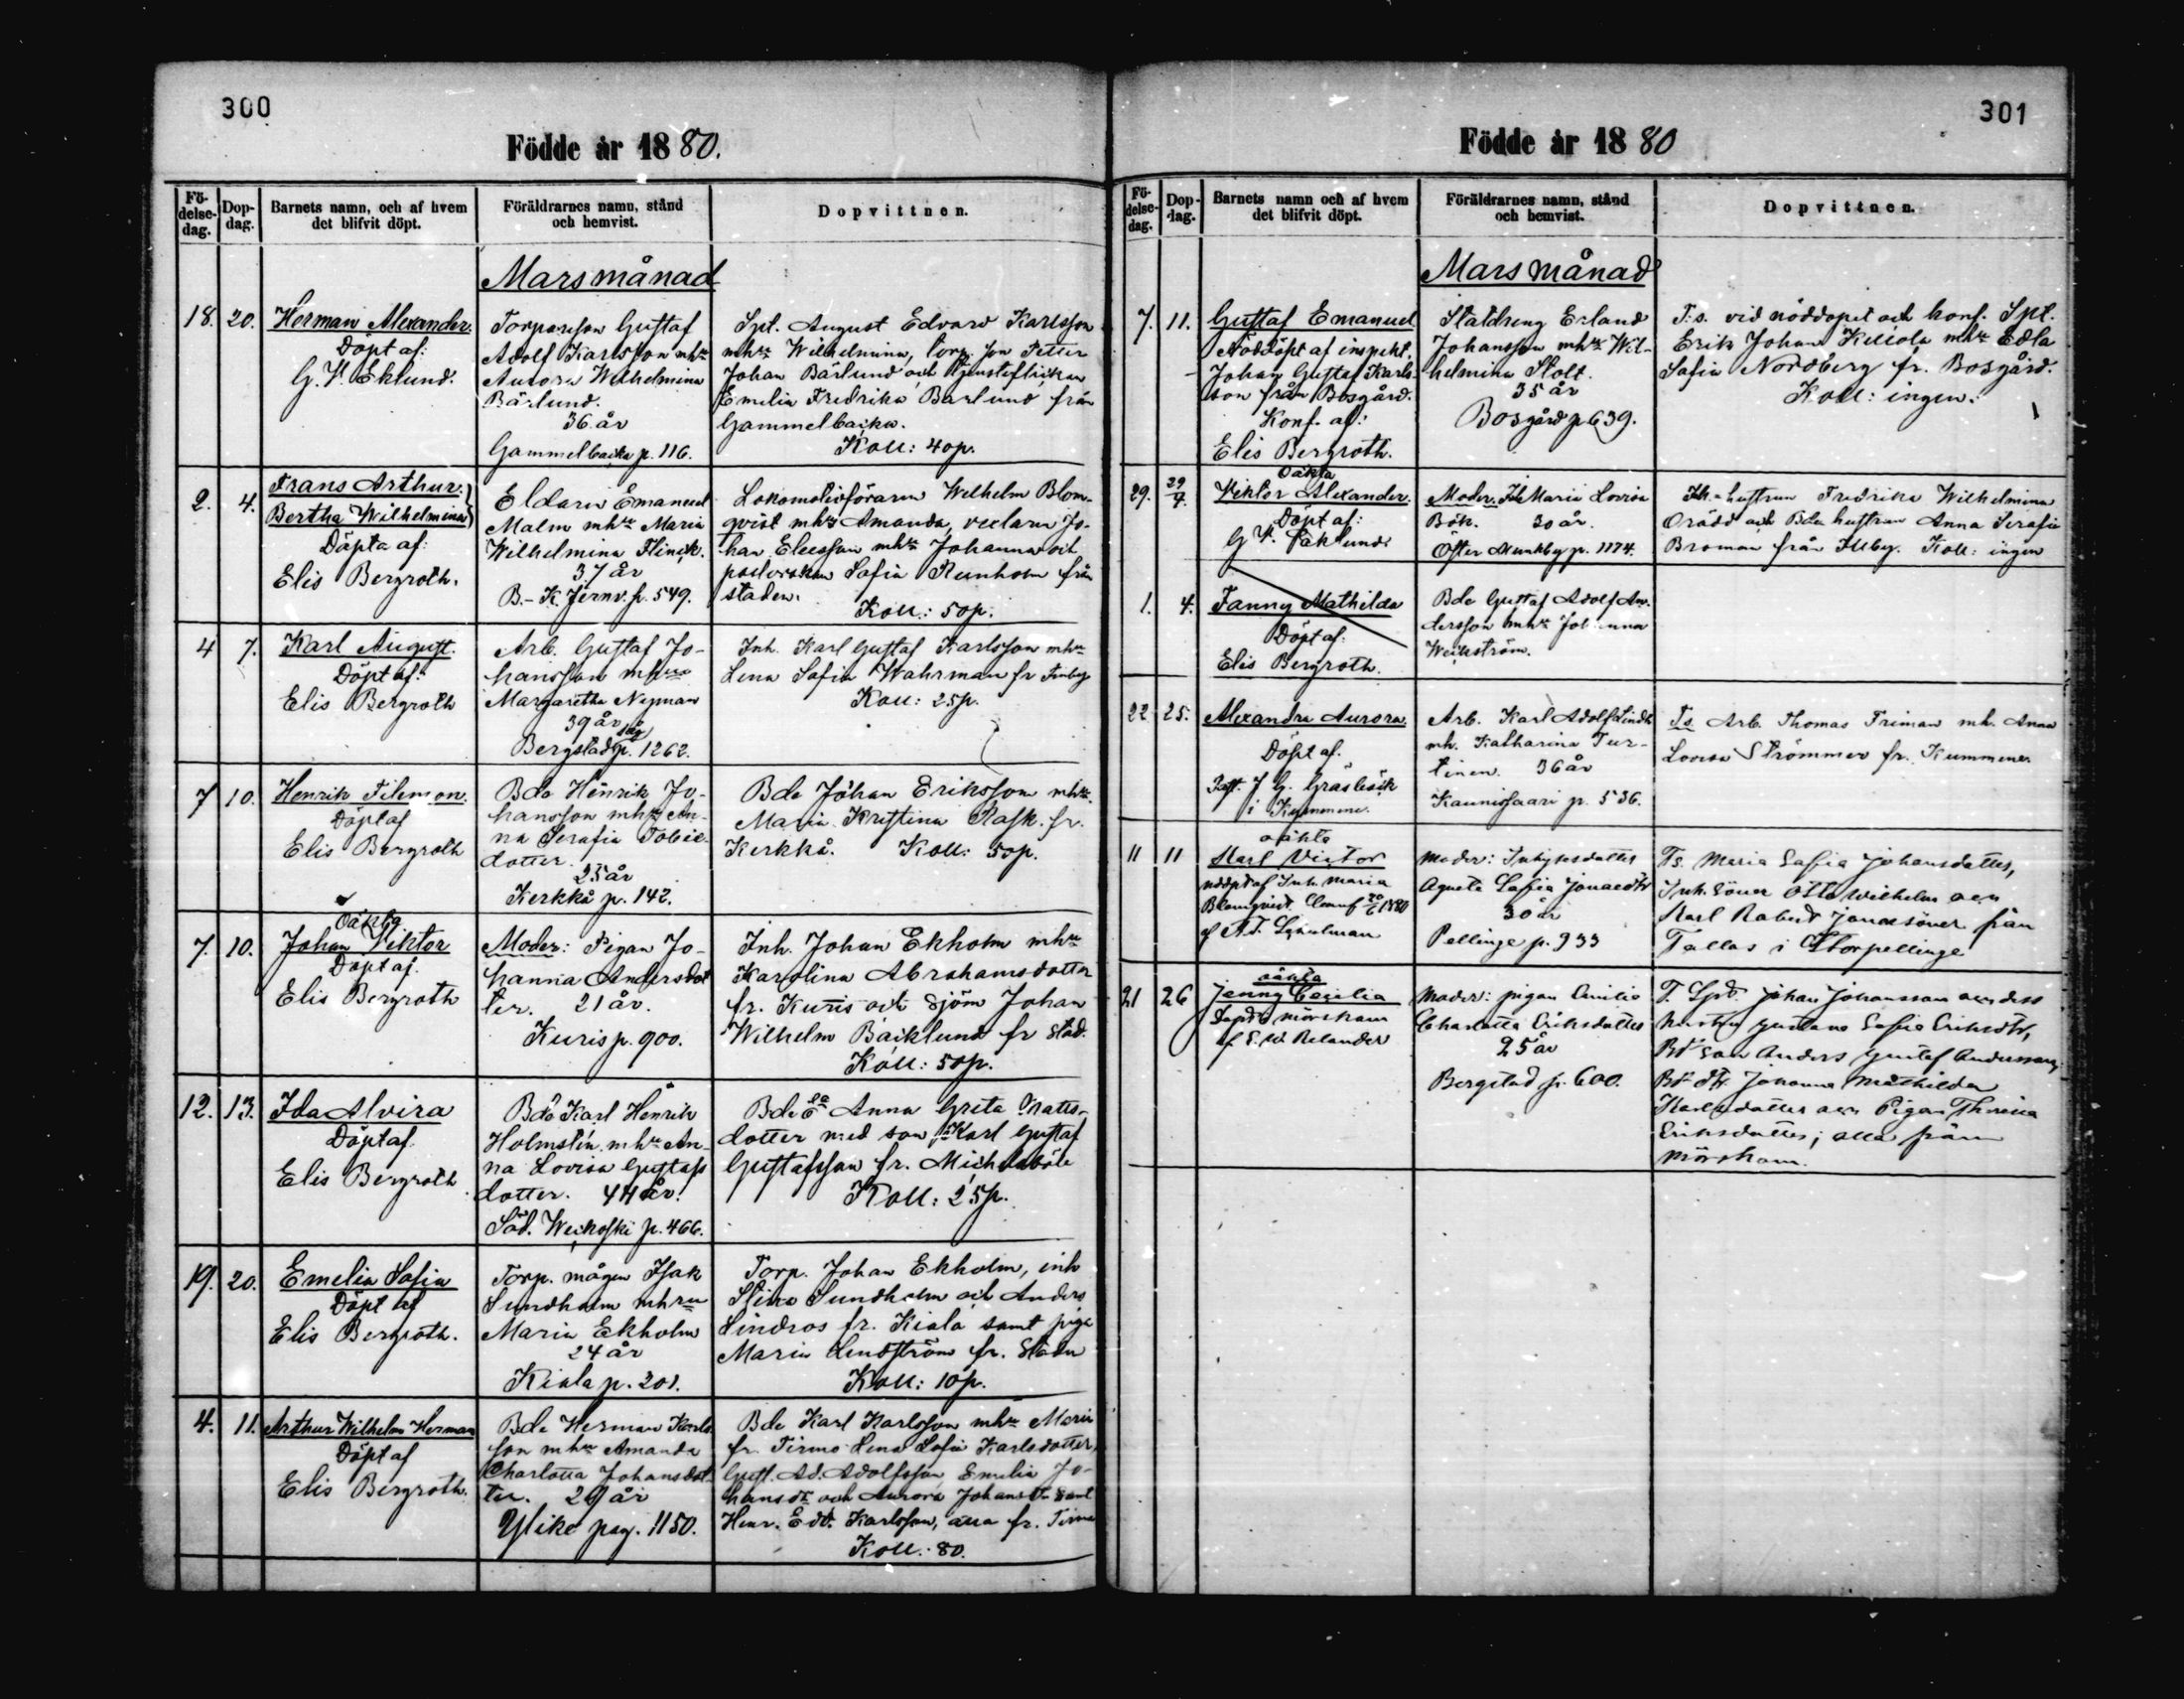 300
Födde år 1880.
Fö-
delse-
dag.
Dop-
dag.
Barnets namn, och af hvem
det blifvit döpt.
Föräldrarnes namn, stånd
och hemvist.
Dopvittnen.
Marsmånad
18. 20.
Herman Alexander.
Döpt af:
G. V. Eklund.
Torpareson Gustaf
Adolf Karlsson mhru
Aurora Wilhelmina
Bärlund.
36 år
Gammelbacka p. 116.
Spt. August Edvard Karlsson
mhru Wilhelmina, torp. son Petter
Johan Bärlund och tjensteflickan
Emelia Fredrika Bärlund från
Gammelbacka.
Koll: 40p.
2. 4.
Frans Arthur.
Bertha Wilhelmina
Döpta af:
Elis Bergroth.
Eldaren Emanuel
Malm mhru Maria
Wilhelmina Flinck.
37 år
B.-K. Jernv. p. 549.
Lokomotivföraren Wilhelm Blom-
qvist mhru Amanda, Jo-
han mhru Johanna och
Sofia från
staden.
Koll: 50p.
4 7.
Karl August.
Döpt af:
Elis Bergroth
Arb. Gustaf Jo-
hansson mhru
Margaretha Nyman
39 år
Bergstad p. 1262.
Inh. Karl Gustaf Karlsson mhru
Lena Sofia Wahrman fr
Koll: 25p.
7 10.
Henrik Filemon.
Döpt af
Elis Bergroth
Bde Henrik Jo-
hansson mhru An-
na Serafia Tobie-
dotter.
25 år
Kerkkå p. 142.
Bde Johan Eriksson mhru
Maria Kristina Rask. fr.
Kerkkå. Koll: 50p.
7. 10.
Oäkta
Johan Viktor
Döpt af.
Elis Bergroth
Moder: Pigan Jo-
hanna Andersdot
ter. 21 år.
Kuris p. 900.
Inh. Johan Ekholm mhru
Karolina Abrahamsdotter
fr. Kuris och sjöm Johan
Wilhelm Bäcklund fr stad.
Koll: 50p.
12. 13.
Ida Alvira
Döpt af.
Elis Bergroth
Bde Karl Henrik
Holmstén mhru An-
na Lovisa Gustafs
dotter. 44 år.
Söd. Weckoski p. 466.
Bde Ea Anna Greta Matts-
dotter med son Karl Gustaf
Gustafsson fr. Michelsböle
Koll: 25p.
19. 20.
Emelia Sofia
Döpt af
Elis Bergroth.
Torp. mågen Isak
Sundholm mhru
Maria Ekholm
24 år
Kiala p. 201.
Torp. Johan Ekholm, inh
Stina Sundholm och Anders
Lindros fr. Kiala samt piga
Maria Lindström fr. staden
Koll: 10p.
4. 11.
Arthur Wilhelm Herman
Döpt af
Elis Bergroth.
Bde Herman Karls
son mhru Amanda
Charlotta Johansdot
ter. 29 år
Ylike pag. 1150.
Bde Karl Karlsson mhru Maria
fr. Tirmo Lena Sofia Karlsdotter,
Gust. Ad. Adolfsson Emelia Jo-
hansdr och Aurora Johansdr samt
Henr. Edv. Karlsson, alla fr. Tirmo
Koll: 80.
301
Födde år 1880
Fö-
delse-
dag.
Dop-
dag.
Barnets namn och af hvem
det blifvit döpt.
Föräldrarnes namn, stånd
och hemvist.
Dopvittnen.
Mars månad
7. 11.
Gustaf Emanuel
Nöddöpt af inspekt.
Johan Gustaf Karls-
son från Bosgård.
Konf. af:
Elis Bergroth.
Statdreng Erland
Johansson mhru Wil-
helmina Stolt.
35 år
Bosgård p 639.
T:s. vid nöddopet och konf. Spt.
Erik Johan mhru Edla
Sofia Nordberg fr. Bosgård.
Koll: ingen.
29. 29/4.
Oäkta
Viktor Alexander.
Döpt af:
G V. Eklund.
Moder: Maria Lovisa
Bök. 30 år.
Öster Munkby p. 1174.
Inh. hustrun Fredrika Wilhelmina
Orädd och Bde hustrun Anna Serafia
Broman från Illby. Koll: ingen
1. 4.
Fanny Mathilda
Döpt af.
Elis Bergroth.
Bde Gustaf Adolf An-
dersson mhru Johanna
Weckström.
22 25.
Alexandra Aurora.
Döpt af.
Past. J G. Gräsbäck
i Kymmene.
Arb. Karl Adolf Lindh
mh. Katharina Tur-
tinen. 36 år
Kaunissaari p. 536.
Ts. Arb. Thomas Friman mh. Anna
Lovisa Strömmer fr. Kymmene.
11 11
oäkta
Karl Victor
nöddpt af Inh. Maria
Blomqvist. Conf 20/6 1880
af Ad. Schulman
Moder: Inhysesdotter
Agneta Sofia Jonaedtr
30 år
Pellinge p. 933
Ts. Maria Sofia Johansdotter,
Inh. söner Otto Wilhelm och
Karl Robert Jonaesöner från
Tallas i Storpellinge
21 26
oäkta
Jenny Cecilia
Döpt i Mörskom
af E. W. Relander
Moder: pigan Emilia
Charlotta Eriksdotter
25 år
Bergstad p. 600.
T. Spt. Johan Johansson och dess
hustru Gustava Sofia Eriksdtr,
Bd son Anders Gustaf Andersson,
Bd dtr Johanna Mathilda
Karlsdotter och Pigan
Eriksdotter; alla från
Mörskom.